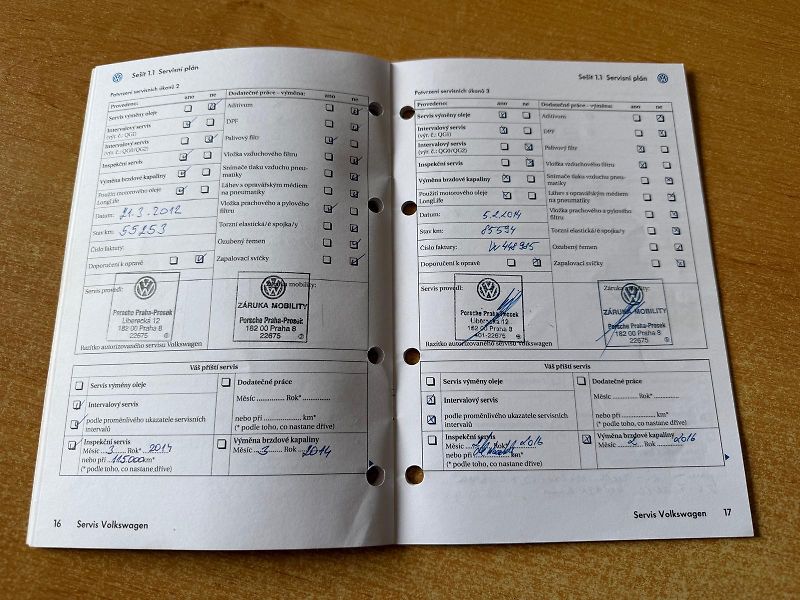 Sešit 1.1 Servisní plán
Potvrzení servisních úkonů 2
Provedeno: ano ne
Servis výměny oleje
Intervalový servis
(výr. č.: QG1)
Intervalový servis
(výr. č.: QG0/QG2)
Inspekční servis
Výměna brzdové kapaliny
Použití motorového oleje
LongLife
Datum: 21.3.2012
Stav km: 55253
Číslo faktury:
Doporučení k opravě
Dodatečné práce – výměna: ano ne
Aditivum
DPF
Palivový filtr
Vložka vzduchového filtru
Snímače tlaku vzduchu pneu-
matiky
Láhev s opravářským médiem
na pneumatiky
Vložka prachového a pylového
filtru
Torzní elastická/é spojka/y
Ozubený řemen
Zapalovací svíčky
Servis provedl:
Porsche Praha-Prosek
Liberecká 12
182 00 Praha 8
22675
Záruka mobility:
ZÁRUKA MOBILITY
Porsche Praha-Prosek
Liberecká 12
182 00 Praha 8
22675
Razítko autorizovaného servisu Volkswagen
Váš příští servis
Servis výměny oleje
Intervalový servis
podle proměnlivého ukazatele servisních
intervalů
Inspekční servis
Měsíc 3 Rok* 2014
nebo při 115000 km*
(* podle toho, co nastane dříve)
Dodatečné práce
Měsíc Rok*
nebo při km*
(* podle toho, co nastane dříve)
Výměna brzdové kapaliny
Měsíc 3 Rok 2014
16 Servis Volkswagen
Sešit 1.1 Servisní plán
Potvrzení servisních úkonů 3
Provedeno: ano ne
Servis výměny oleje
Intervalový servis
(výr. č.: QG1)
Intervalový servis
(výr. č.: QG0/QG2)
Inspekční servis
Výměna brzdové kapaliny
Použití motorového oleje
LongLife
Datum: 5.2.2014
Stav km: 85594
Číslo faktury:
Doporučení k opravě
Dodatečné práce – výměna: ano ne
Aditivum
DPF
Palivový filtr
Vložka vzduchového filtru
Snímače tlaku vzduchu pneu-
matiky
Láhev s opravářským médiem
na pneumatiky
Vložka prachového a pylového
filtru
Torzní elastická/é spojka/y
Ozubený řemen
Zapalovací svíčky
Servis provedl:
Porsche Praha-Prosek
Liberecká 12
182 00 Praha 8
401-22675
Záruka mobility:
ZÁRUKA MOBILITY
Porsche Praha-Prosek
Liberecká 12
182 00 Praha 8
22675
Razítko autorizovaného servisu Volkswagen
Váš příští servis
Servis výměny oleje
Intervalový servis
podle proměnlivého ukazatele servisních
intervalů
Inspekční servis
Měsíc Rok* 2016
nebo při km*
(* podle toho, co nastane dříve)
Dodatečné práce
Měsíc Rok*
nebo při km*
(* podle toho, co nastane dříve)
Výměna brzdové kapaliny
Měsíc Rok 2016
Servis Volkswagen 17